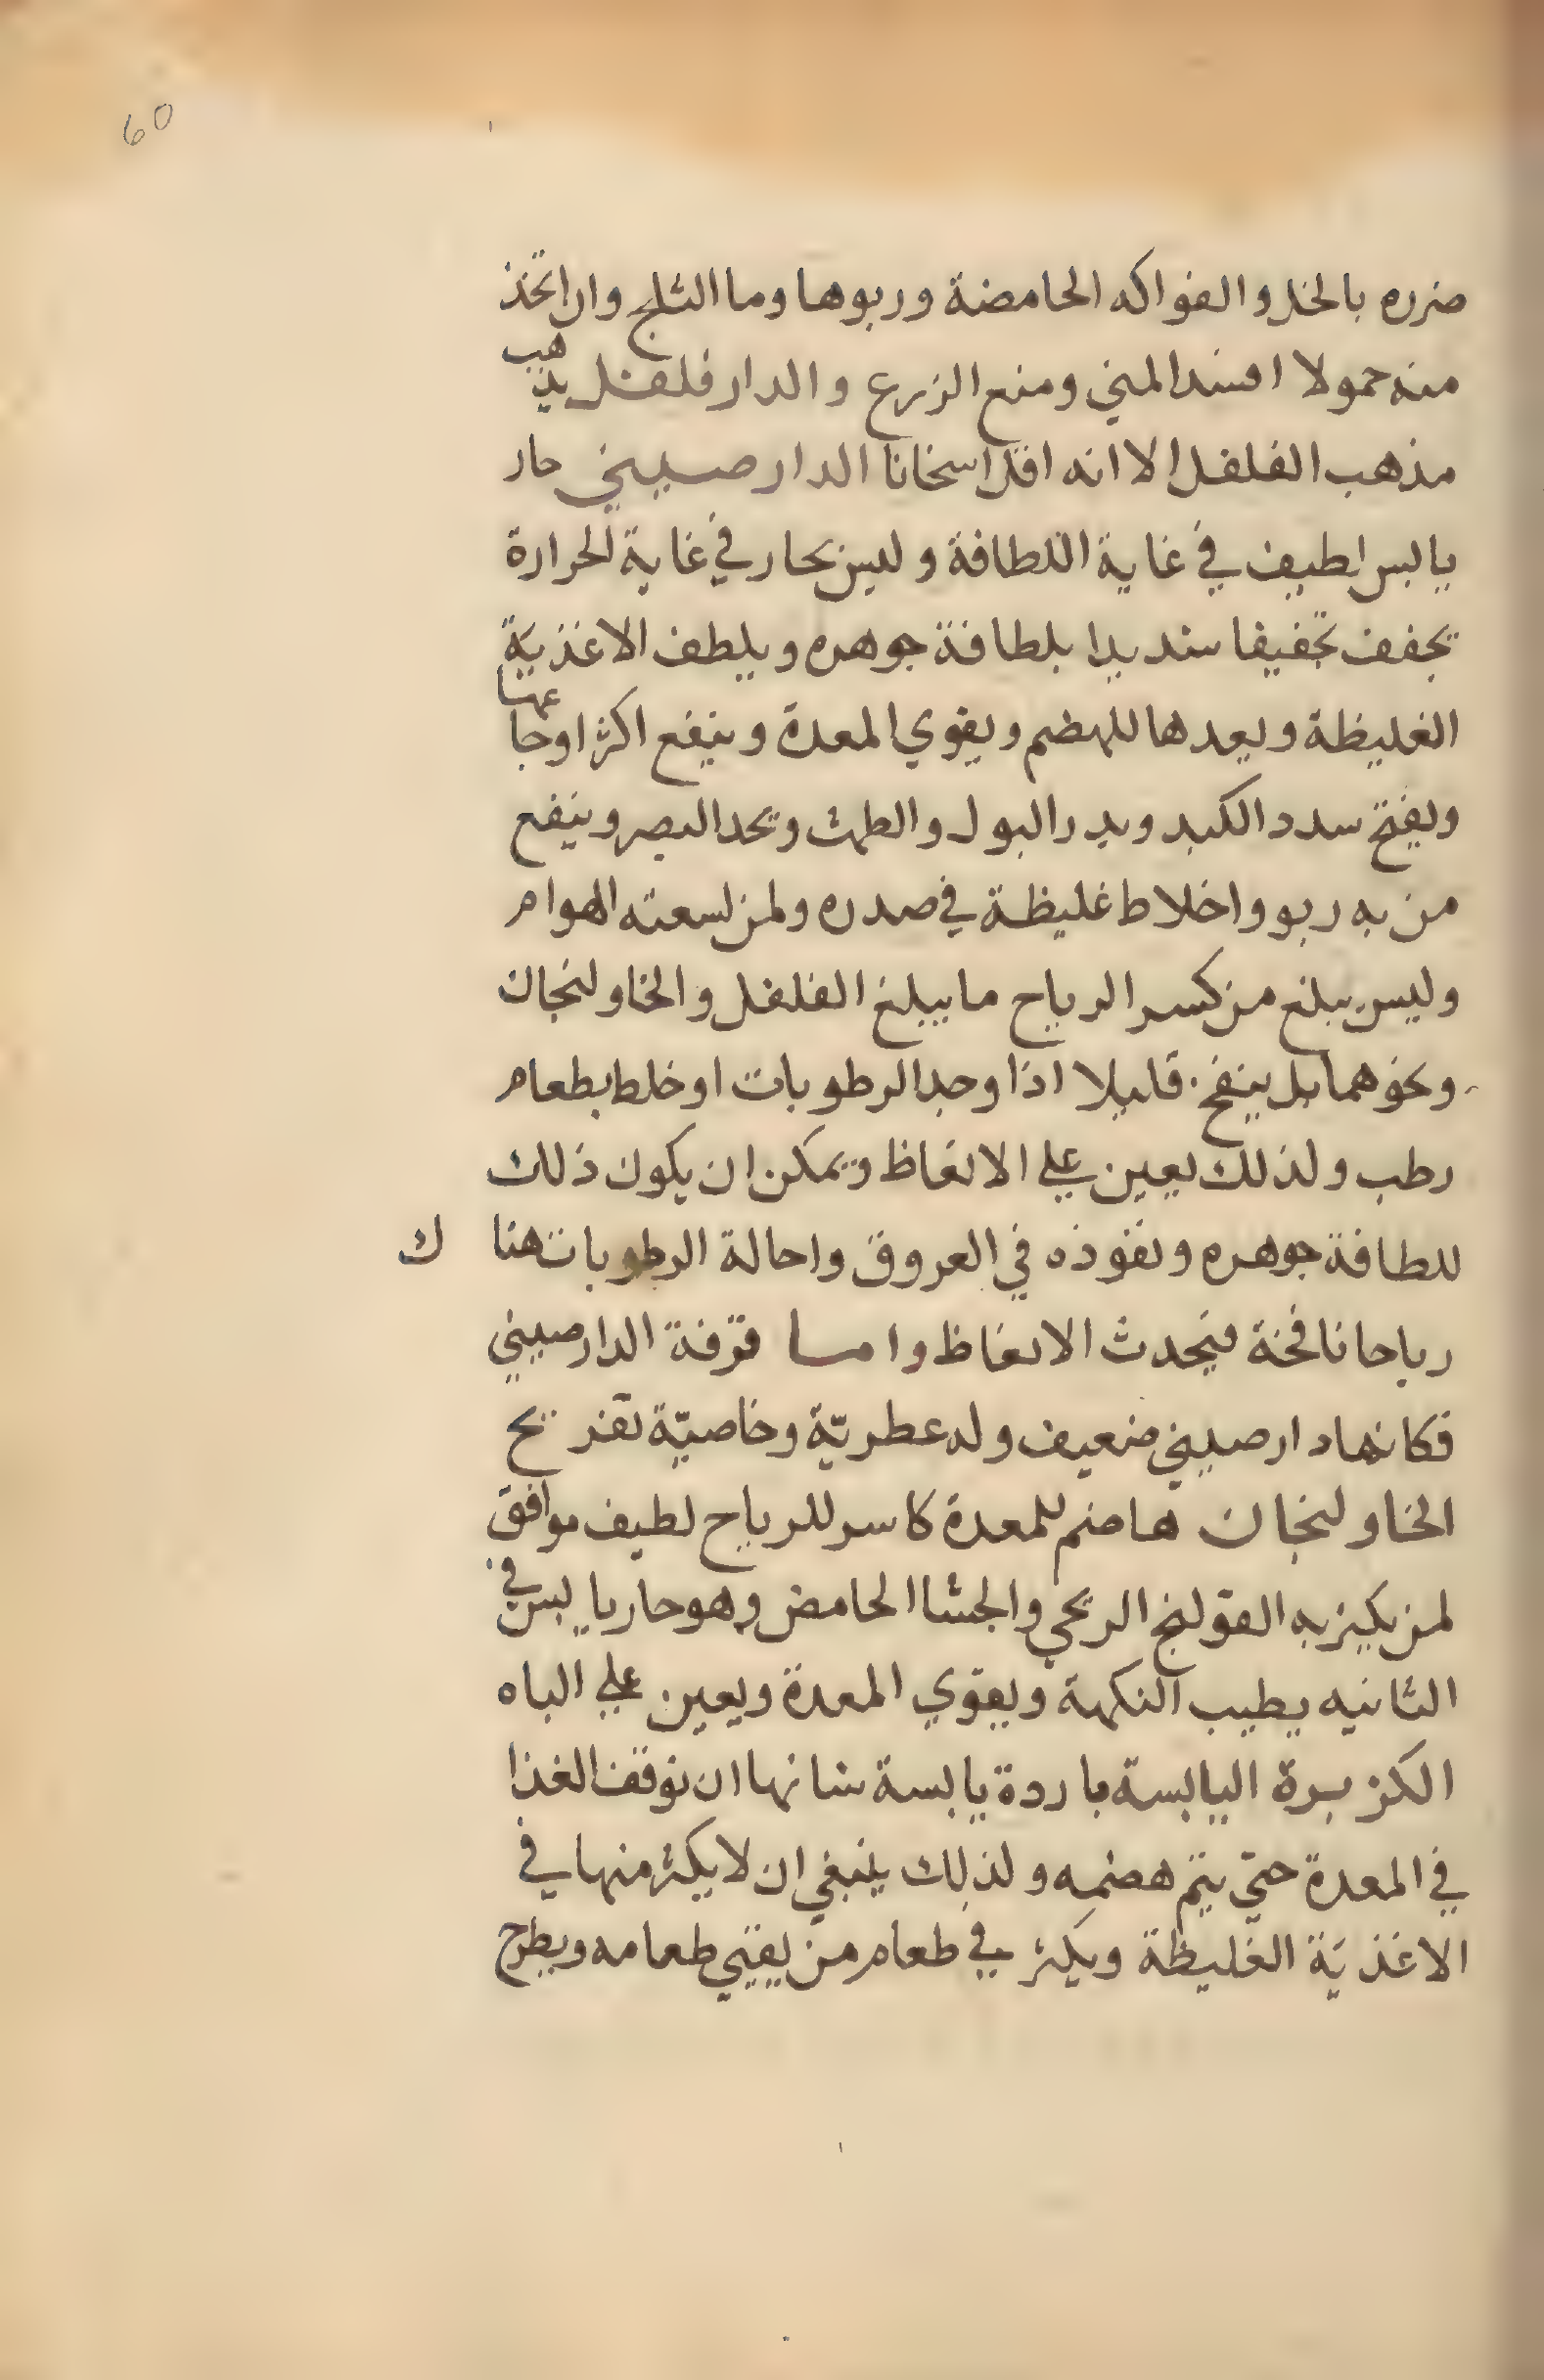 60
ضرره بالخل والفواكه الحامضة وربوها وما الثلج وان اتخذ
منه حمولا افسد المني ومنع الزرع والدار فلفل يذهب
مذهب الفلفل الا انه اقل اسخانا الدار صيني حار
يابس لطيف في غاية اللطافة وليس بحار في غاية الحرارة
يجفف تجفيفا شديدا بلطافة جوهره ويلطف الاغذية
الغليظة ويعدها للهضم ويقوي المعدة وينفع اكثر اوجاعها
ويفتح سدد الكبد ويدر البول والطمث ويحد البصر وينفع
من به ربو واخلاط غليظة في صدره ولمن لسعته الهوام
وليس يبلغ من كسر الرياح ما يبلغ الفلفل والخاولنجان
ونحوهما بل ينفخ قليلا اذا وجد الرطوبات او خلط بطعام
رطب ولذلك يعين علي الانعاظ ويمكن ان يكون ذلك
للطافة جوهره ونفوذه في العروق واحالة الرطوبات هناك
رياحا نافخة فيحدث الانعاظ واما قرفة الدار صيني
فكانها دار صيني ضعيف وله عطريّة وخاصيّة تفريح
الخاولنجان هاضم للمعدة كاسر للرياح لطيف موافق
لمن يكثر به القولنج الريحي والجشا الحامض وهو حار يابس في
الثانيه يطيب النكهة ويقوي المعدة ويعين علي الباه
الكزبرة اليابسة باردة يابسة شانها ان توقف الغذا
في المعدة حتي يتم هضمه ولذلك ينبغي ان لا يكثر منها في
الاغذية الغليظة ويكثر في طعام من يقيي طعامه ويطرح